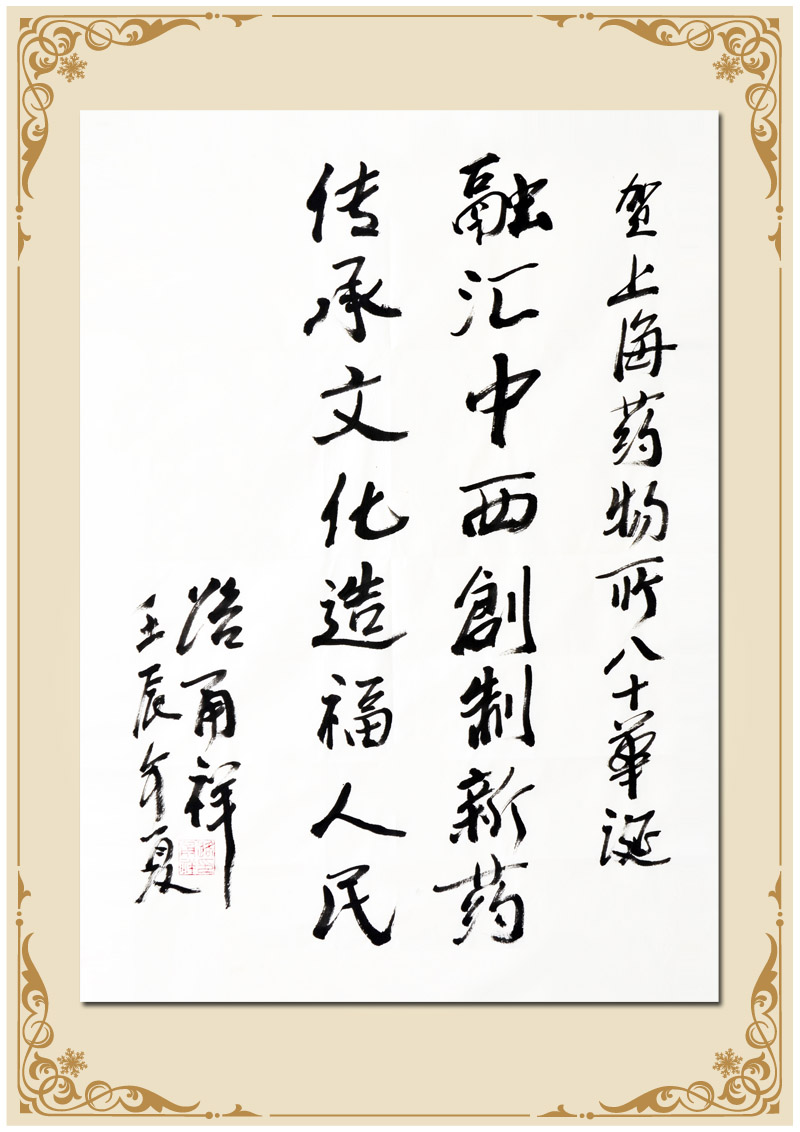 贺上海药物所八十華诞
融汇中西創制新药
传承文化造福人民
路甬祥
壬辰年夏